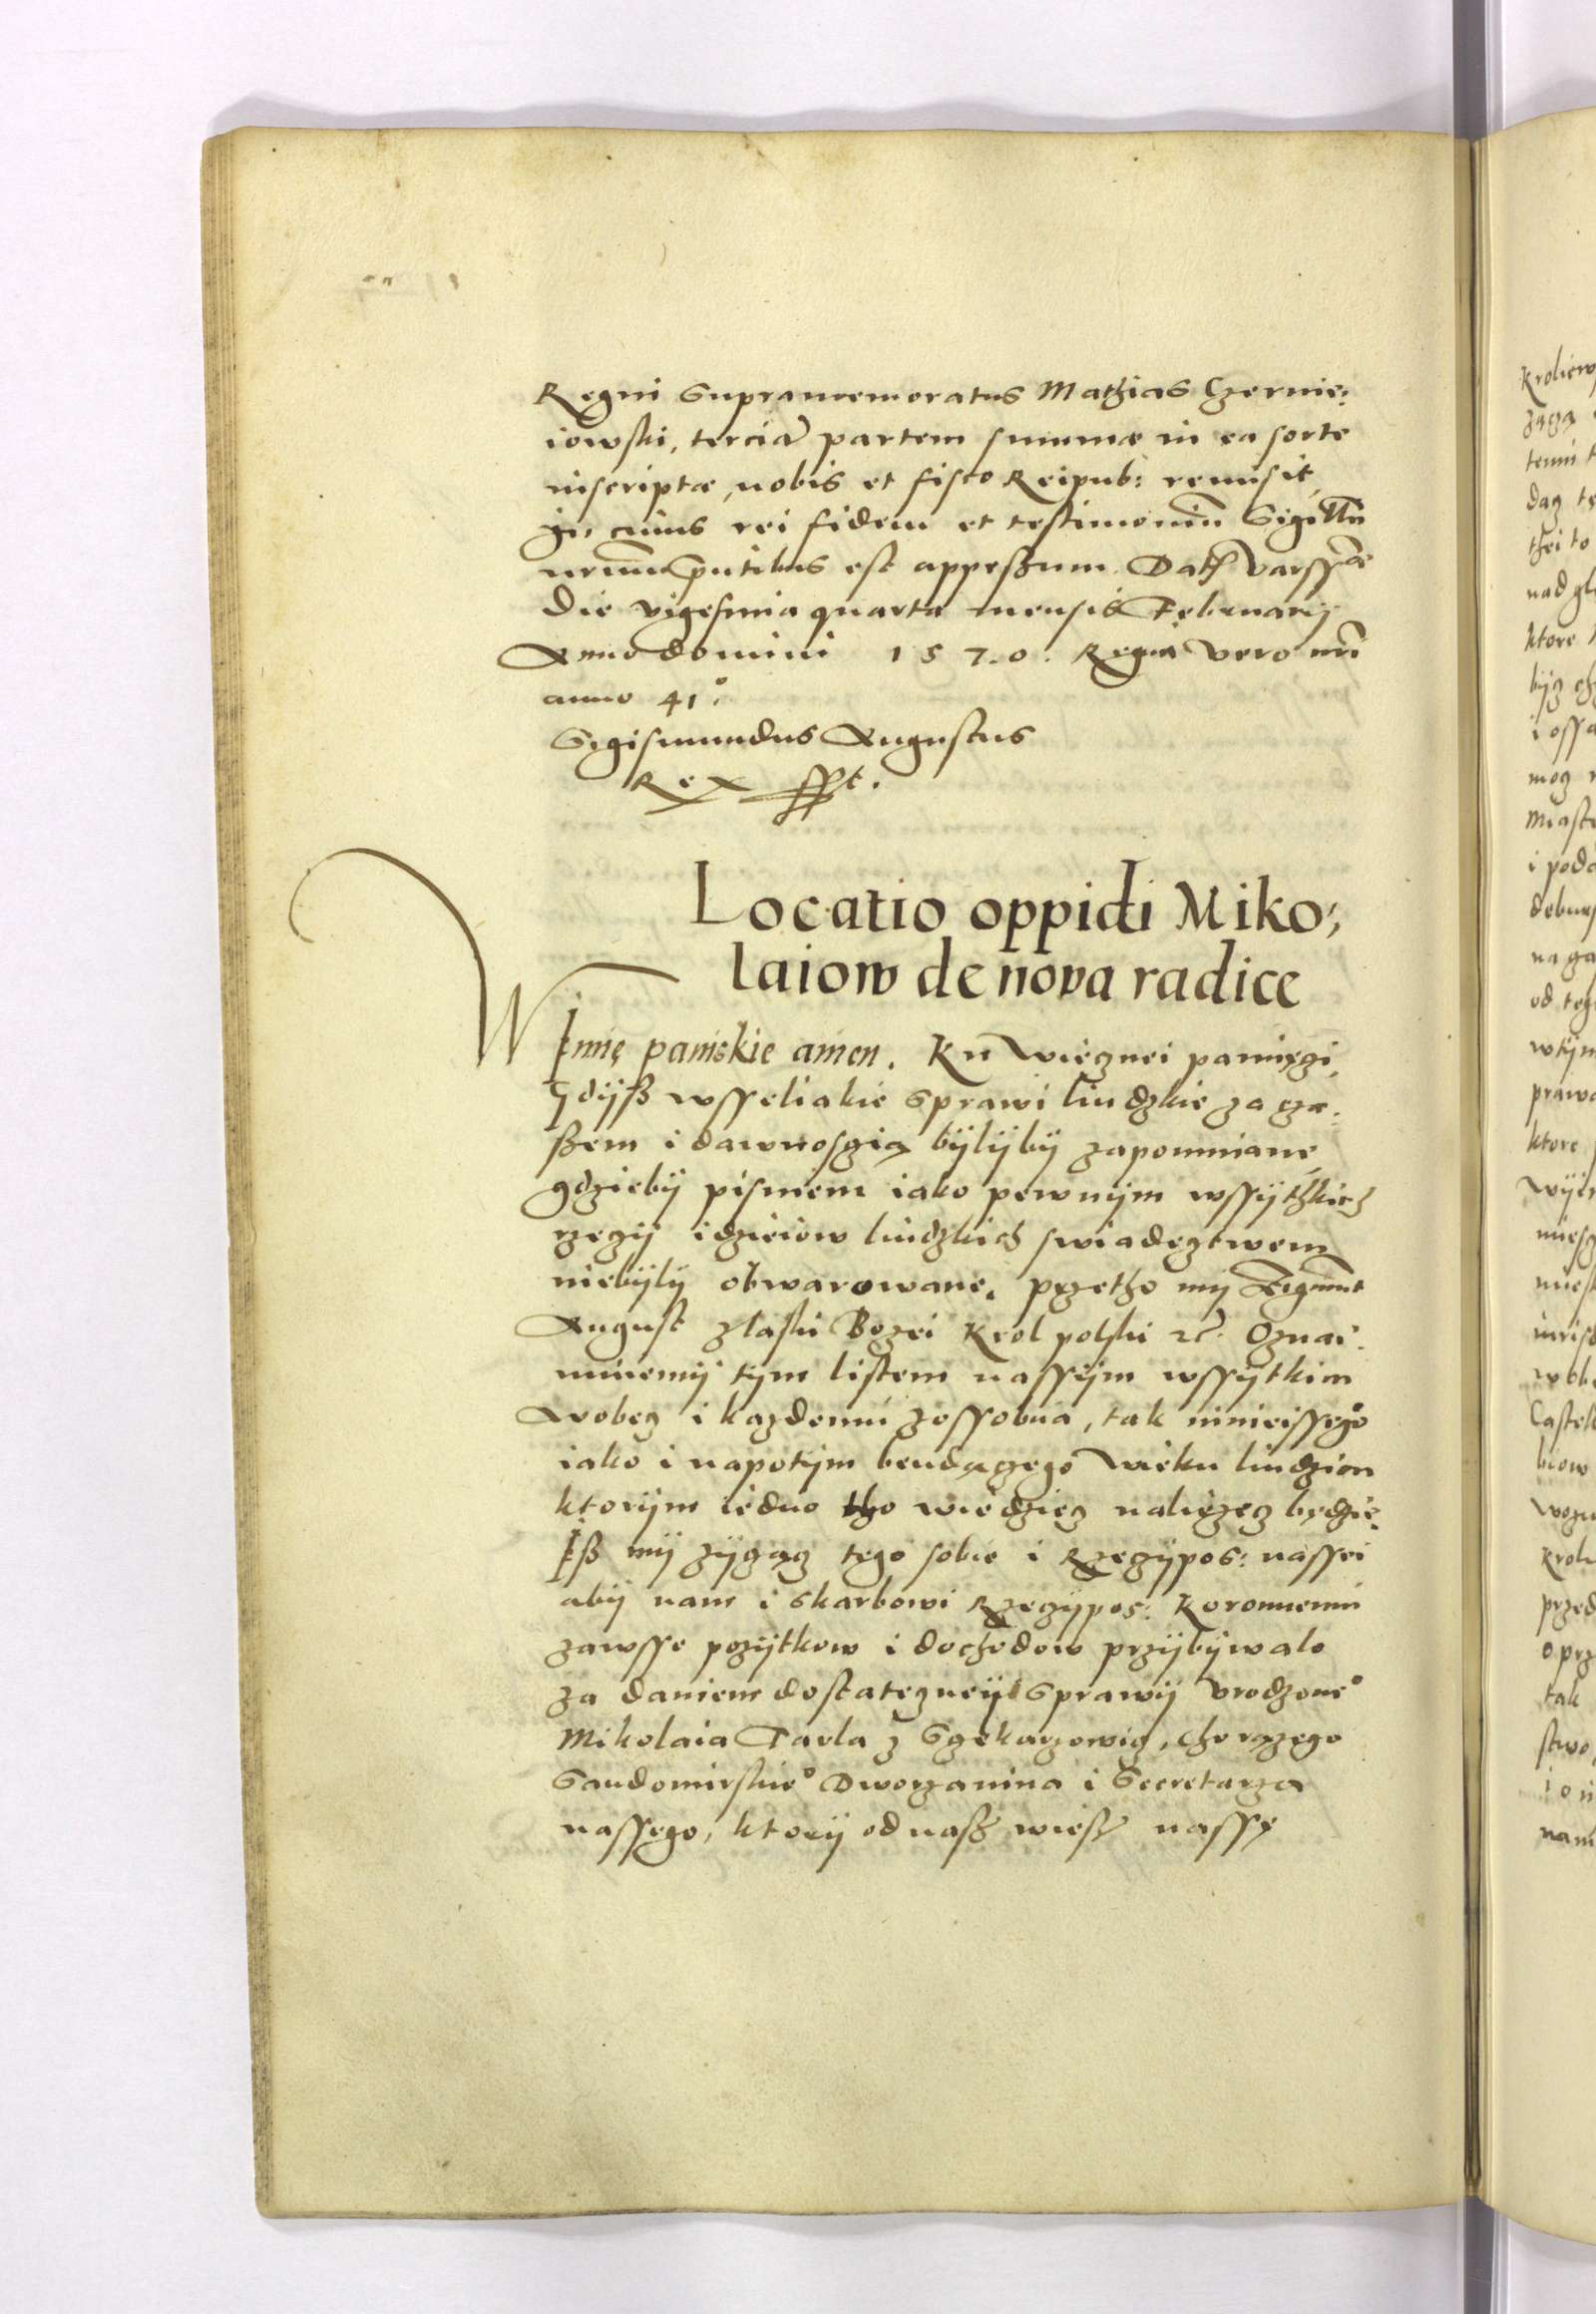 Regni supramemoratus Mathias Czernie:
iowski, tercia᷈ partem summæ in ea sorte
inscriptæ, nobis et fisco Reipub: remisit,
In cuius rei fidem et testimoniũ Sigillũ
nrum pntibus est appressum. Dat Varssæ
Die vigesima quarta mensis Februarij
Anno domini 1570. Regni vero nri
anno 41°.
Sigismundus Augustus
Rex sspt.
Locatio oppidi Miko:
laiow de nova radice
W Imię pańskie amen. Ku wiecznei pamięczi,
Gdijß wsseliakie sprawi liudzkie za cza:
ßem i dawnosczią bijlijbij zapomniane
gdziebij pismem iako pewnijm wssijthkich
rzeczij i dzieiow liudzkich swiadecztwem
niebijlij obwarowane. Przetho my Zigmunt
August z laski Bozei Krol polski etc. Oznai:
miniemij tym listem nassijm wssijtkim
wobecz i kazdemu zossobna, tak ninieissego
iako i napotijm bendączego wieku liudziom
ktorijm iedno tho wiedziecz naliezecz będzie.
Iß mij zijcząc tego sobie i Rzeczijpos: nassei
abij nam i skarbowi Rzeczijpos: Koronnemu
zawsse pozijtkow i dochodow przijbijwalo
za daniem dostatecznei sprawij Urodzone°
Mikolaia Tarla z Sczekarzowicz, chorązego
Sandomirskie° Dworzanina i Secretarza
nassego, ktorij od naß wieß nassę
Kroliew
temi
thei to
nad gl
ktore
i ossa
mog
Miast
i poda
na ga
od teg
wtijm
praw
ktore
Castel
biow
Kroli
przed
oprz
tak
nam